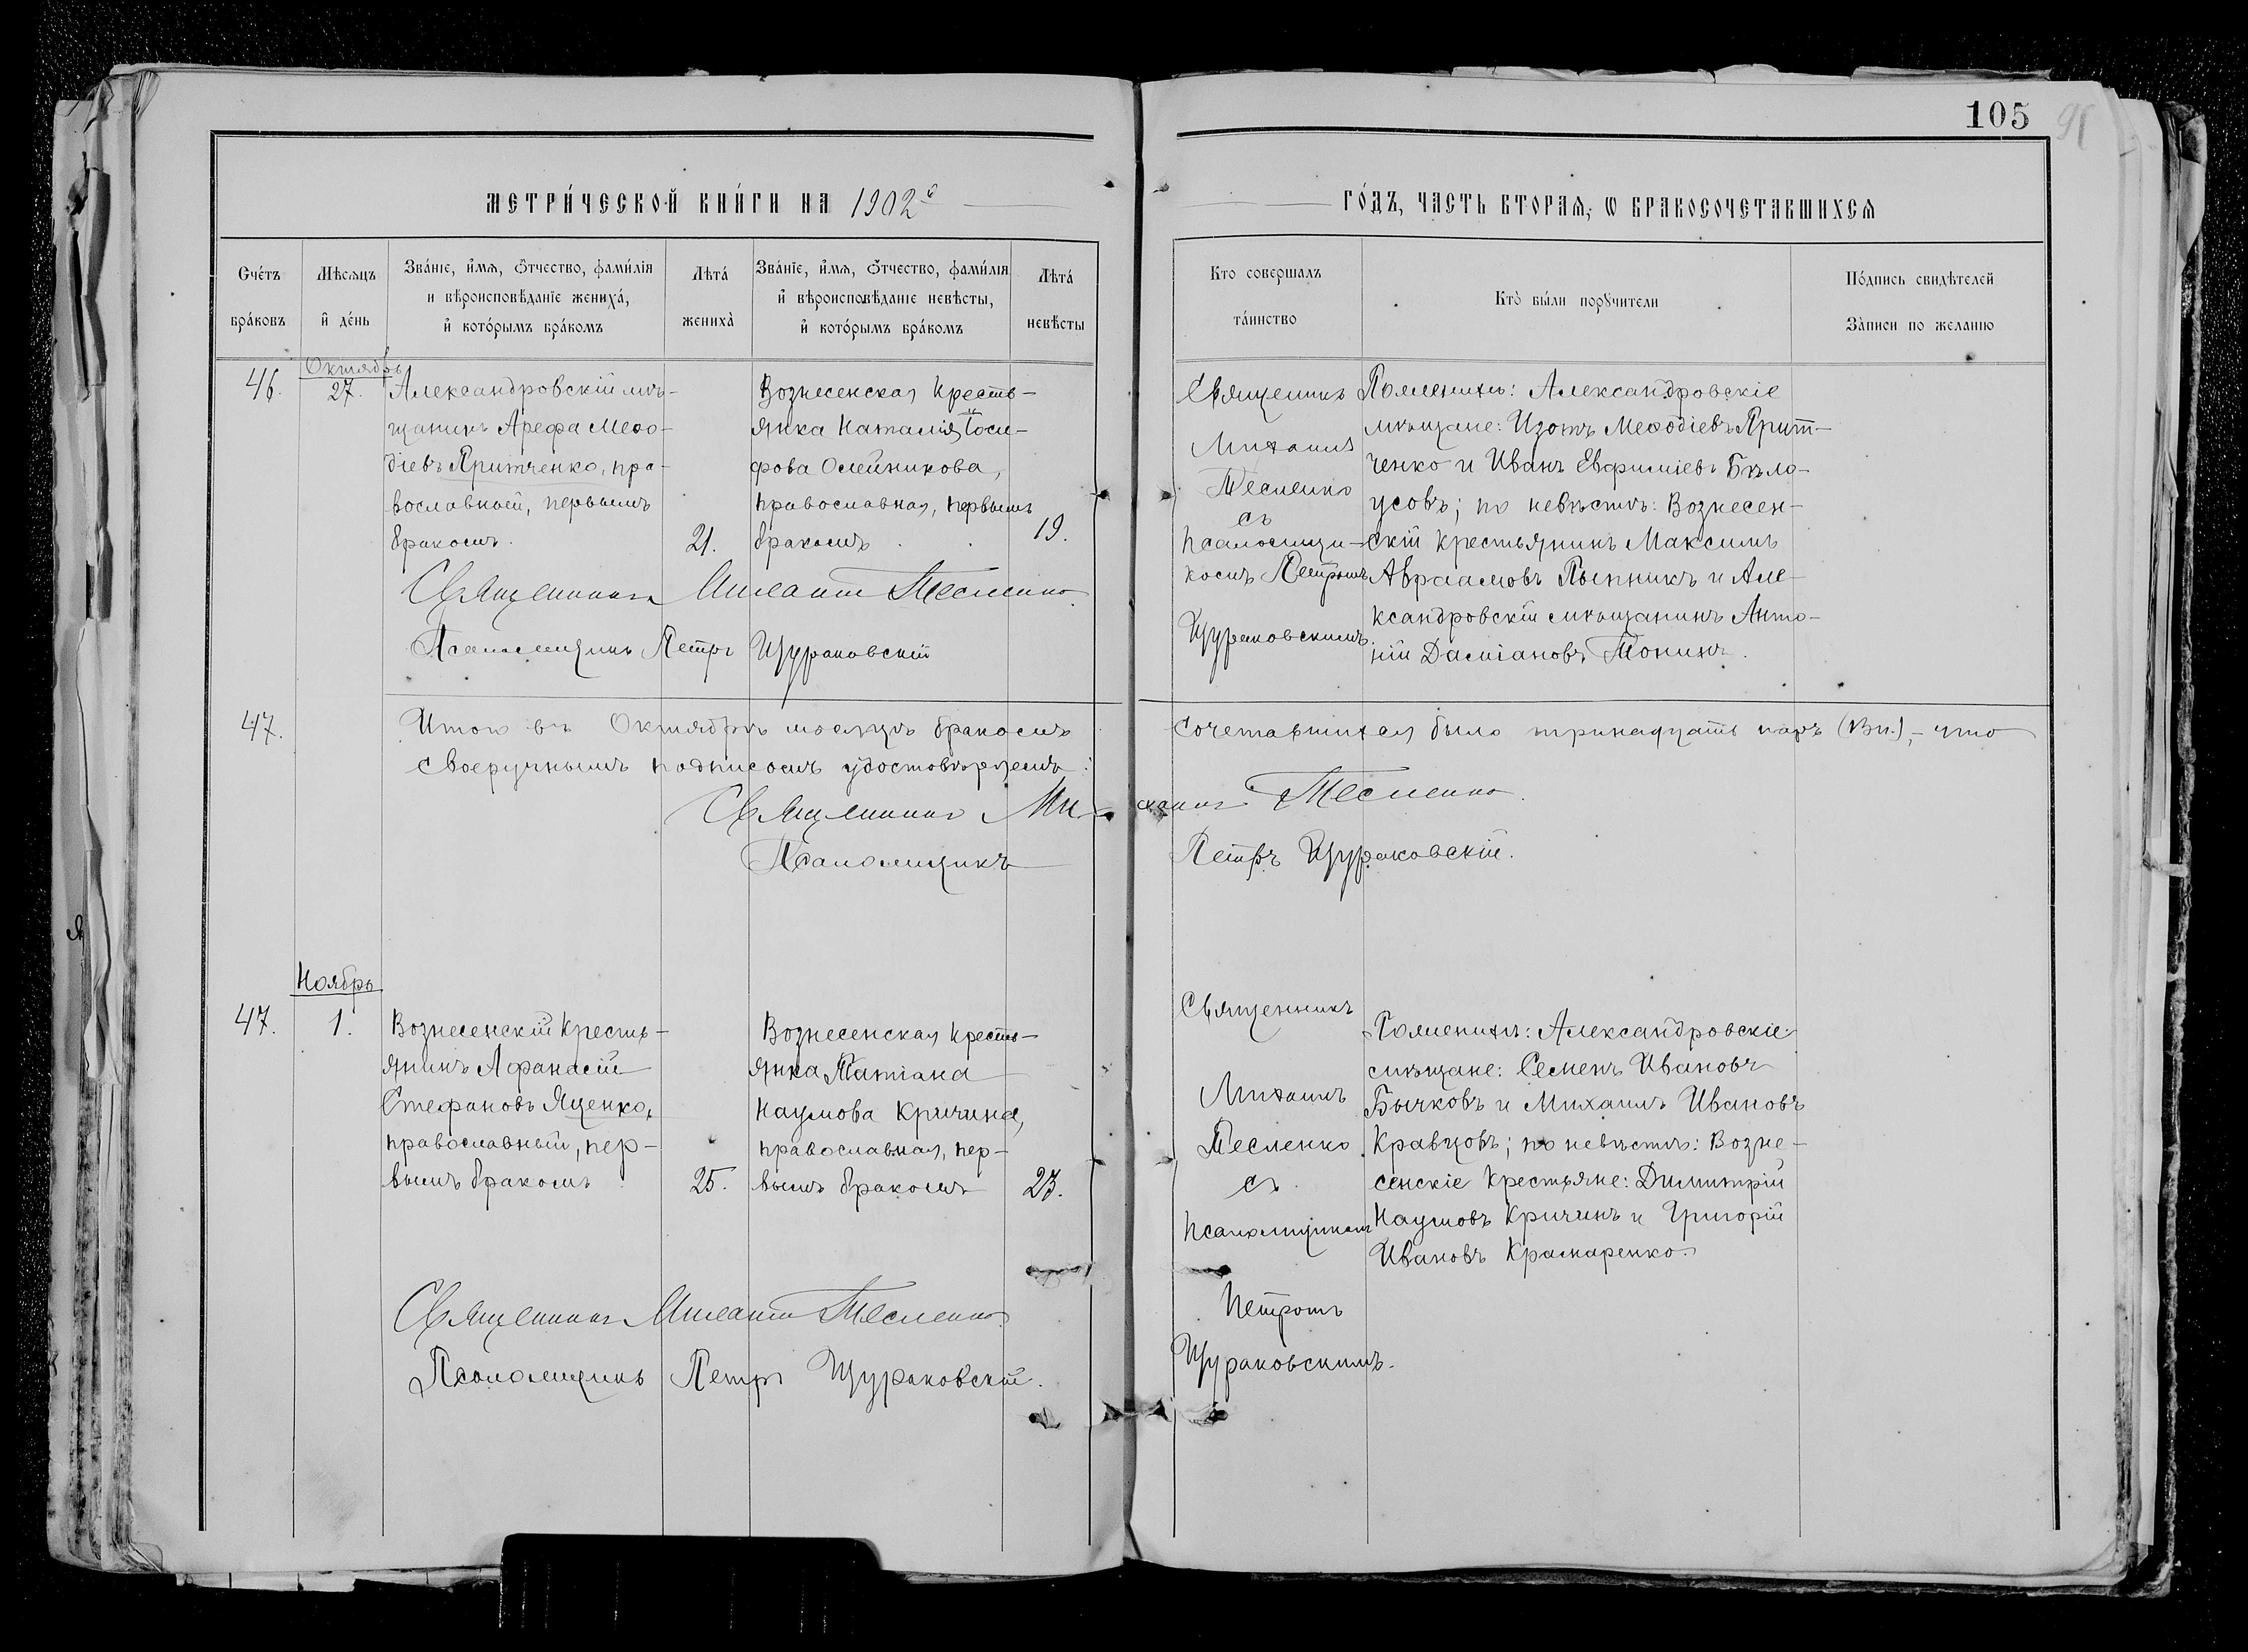 105
98
МЕТРИ́ЧЕСКОЙ КНИ́ГИ НА 1902й
ГО́ДЪ, ЧАСТЬ ВТОРАѦ, Ѡ БРАКОСОЧЕТАВШИХСѦ
Счéтъ бра́ковъ
Мѣсѧцъ и҆ де́нь
Зва́нїе, и҆́мѧ, ѻ҆́тчество, фами́лїѧ
и вѣроисповѣ́данїе жениха̀,
и҆ кото́рымъ бра́комъ
Лѣта́ жениха̀
Зва́нїе, и҆́мѧ, ѻ҆́тчество, фами́лїѧ
и҆ вѣроисповѣ́данїе невѣ́сты,
и҆ кото́рымъ бра́комъ
Лѣта́ невѣ́сты
Кто совершалъ та́инство
Кто̀ бы́ли порꙋчители
По́дпись свидѣтелей
За̀писи по желанїю
Октябрь
46.
27.
Александровскій мѣ-
щанинъ Арефа Меѳо-
діевъ Притченко, пра-
вославный, первымъ
бракомъ.
21.
Вознесенская кресть-
янка Наталія Іоси-
фова Олейникова,
православная, первымъ
бракомъ
19.
Священникъ
Михаилъ
Тесленко
съ
псаломщи-
комъ Петромъ
Щураковскимъ
По женихѣ: Александровскіе
мѣщане: Изотъ Меѳодіевъ Прит-
ченко и Иванъ Евфиміевъ Бѣло-
усовъ; по невѣстѣ: Вознесен-
скій крестьянинъ Максимъ
Авраамовъ Пыпникъ и Але-
ксандровскій мѣщанинъ Анто-
ній Даміановъ Тонинъ.
Священникъ Михаилъ Тесленко.
Псаломщикъ Петръ Щураковскій
47.
Итого въ Октябрѣ мѣсяцѣ бракомъ сочетавшихся было тринадцать паръ (13 п.), - что
своеручнымъ подписомъ удостовѣряемъ:
Священникъ Михаилъ Тесленко.
Псаломщикъ Петръ Щураковскій.
Ноябрь
47.
1.
Вознесенскій кресть-
янинъ Афанасій
Стефановъ Яценко,
православный, пер-
вымъ бракомъ
25.
Вознесенская кресть-
янка Татіана
Наумова Кричина,
православная, пер-
вымъ бракомъ
23.
Священникъ
Михаилъ
Тесленко
съ
псаломщикомъ
Петромъ
Щураковскимъ.
По женихѣ: Александровскіе
мѣщане: Семенъ Ивановъ
Бычковъ и Михаилъ Ивановъ
Кравцовъ; по невѣстѣ: Возне-
сенскіе крестьяне: Димитрій
Наумовъ Кричинъ и Григорій
Ивановъ Крамаренко.
Священникъ Михаилъ Тесленко.
Псаломщикъ Петръ Щураковскій.